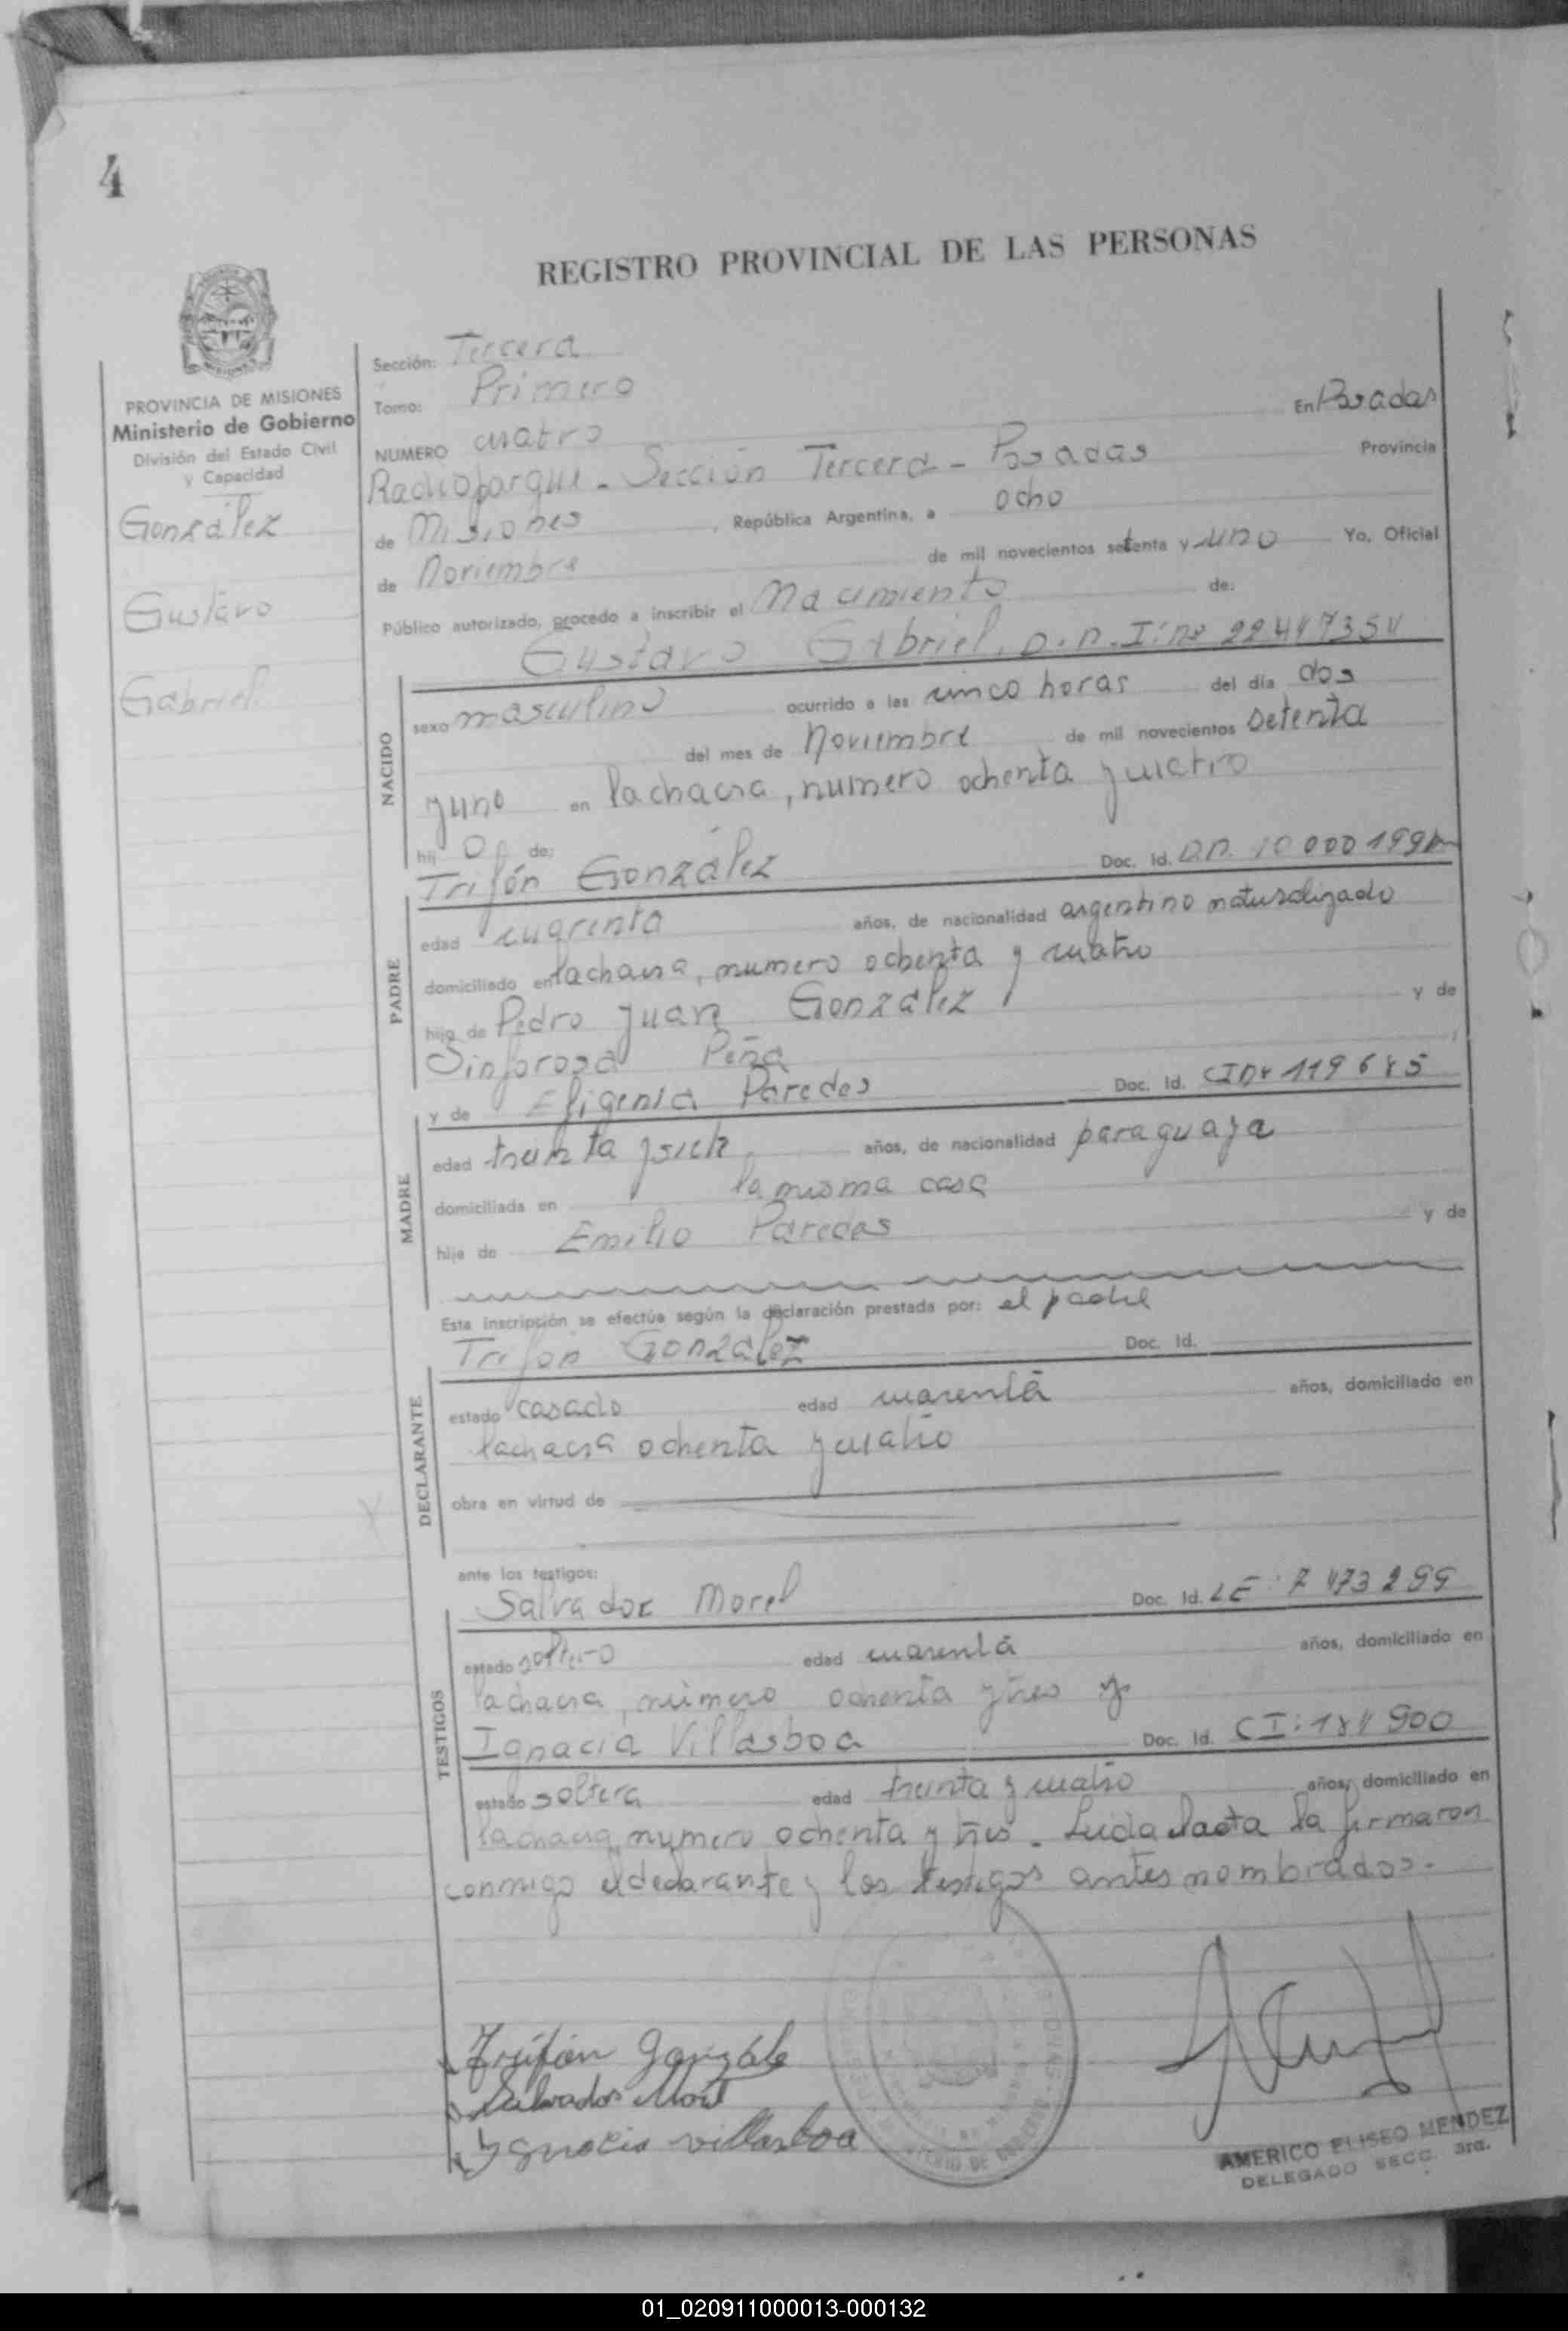 4
REGISTRO PROVINCIAL DE LAS PERSONAS
PROVINCIA DE MISIONES
Ministerio de Gobierno
División del Estado Civil
y Capacidad
González
Gustavo
Gabriel
Sección: Tercera
Tomo: Primero
En Posadas
NUMERO cuatro
Provincia
Sección Tercera - Posadas
de Misiones, República Argentina, a ocho
de Noviembre de mil novecientos setenta y uno Yo, Oficial
Público autorizado, procedo a inscribir el Nacimiento de:
Gustavo Gabriel. D.N.I: nº
NACIDO
sexo masculino ocurrido a las cinco horas del día dos
del mes de Noviembre de mil novecientos setenta
y uno en la chacra, numero ochenta y cuatro
hij o de:
Trifón González Doc. Id.
PADRE
edad cuarenta años, de nacionalidad argentino naturalizado
domiciliado en la chacra, numero ochenta y cuatro
hijo de Pedro Juan González y de
Sinforosa Peña
y de Efigenia Paredes Doc. Id.
MADRE
edad treinta y siete años, de nacionalidad paraguaya
domiciliada en la misma casa
hija de Emilio Paredes y de
Esta inscripción se efectúa según la declaración prestada por: el padre
Trifón González Doc. Id.
DECLARANTE
estado casado edad cuarenta años, domiciliado en
la chacra ochenta y cuatro
obra en virtud de
ante los testigos:
Salvador Morel Doc. Id. LE: 7 473 299
TESTIGOS
estado soltero edad cuarenta años, domiciliado en
la chacra, número ochenta y tres y
Ignacia Villasboa Doc. Id. CI: 184 900
estado soltera edad treinta y cuatro años, domiciliado en
la chacra, numero ochenta y tres. Leida el acta la firmaron
conmigo el declarante y los testigos antes nombrados.-
Trifón Gonzále
Salvador Morel
Ignacia villasboa
AMERICO ELISEO MENDEZ
DELEGADO SECC. 3ra.
01_020911000013-000132